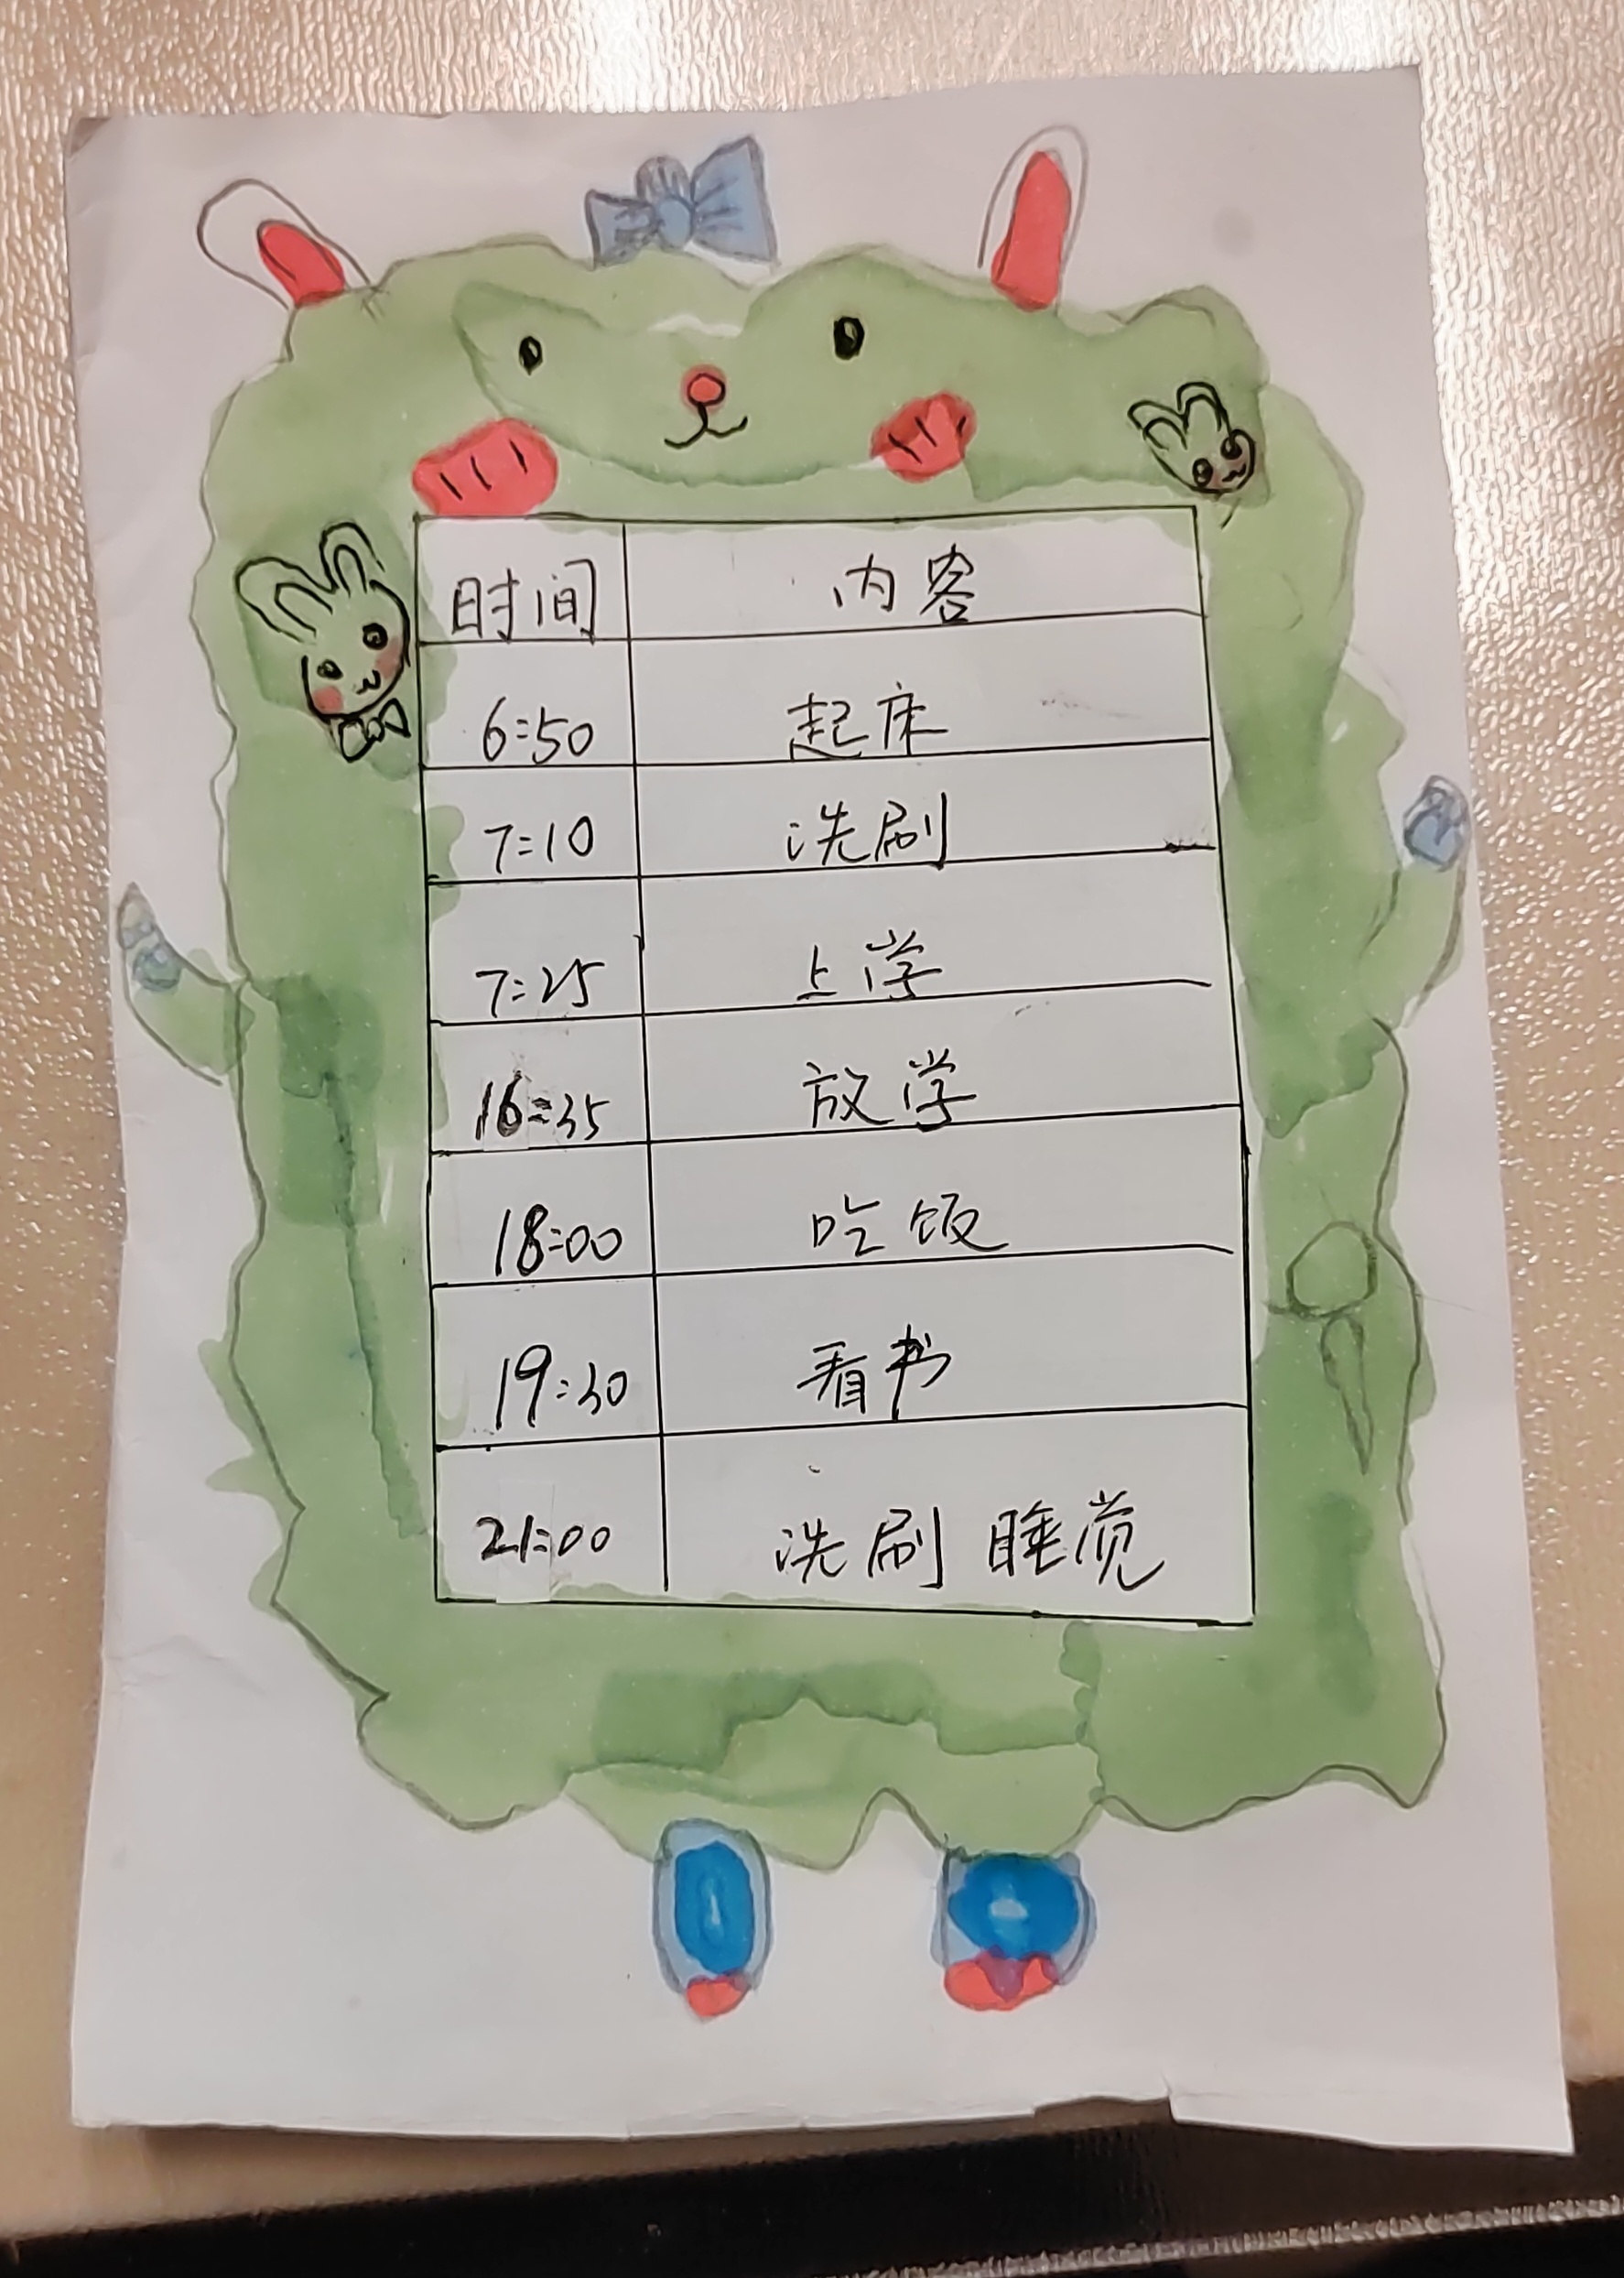 时间 内容
6:50 起床
7:10 洗刷
7:25 上学
16:35 放学
18:00 吃饭
19:30 看书
21:00 洗刷 睡觉